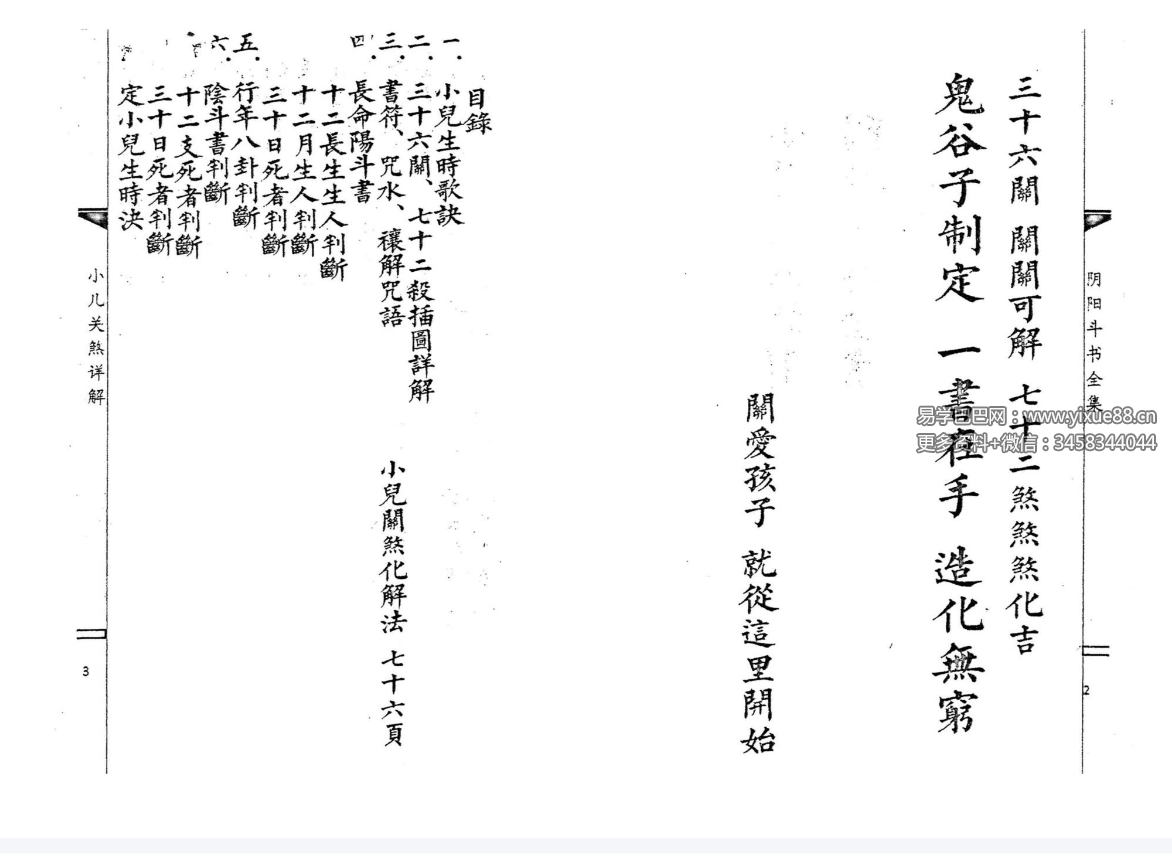 阴阳斗书全集
2
三十六關 關關可解 七十二煞煞煞化吉
鬼谷子制定 一書在手 造化無窮
關愛孩子 就從這里開始
易学巴巴网：www.yixue88.cn
更多资料+微信：3458344044
目錄
一.小兒生時歌訣
二.三十六關、七十二殺插圖詳解
三.書符、咒水、禳解咒語
小兒關煞化解法 七十六頁
四.長命陽斗書
十二長生生人判斷
十二月生人判斷
三十日死者判斷
五.行年八卦判斷
六.陰斗書判斷
十二支死者判斷
三十日死者判斷
定小兒生時決
小儿关煞详解
3